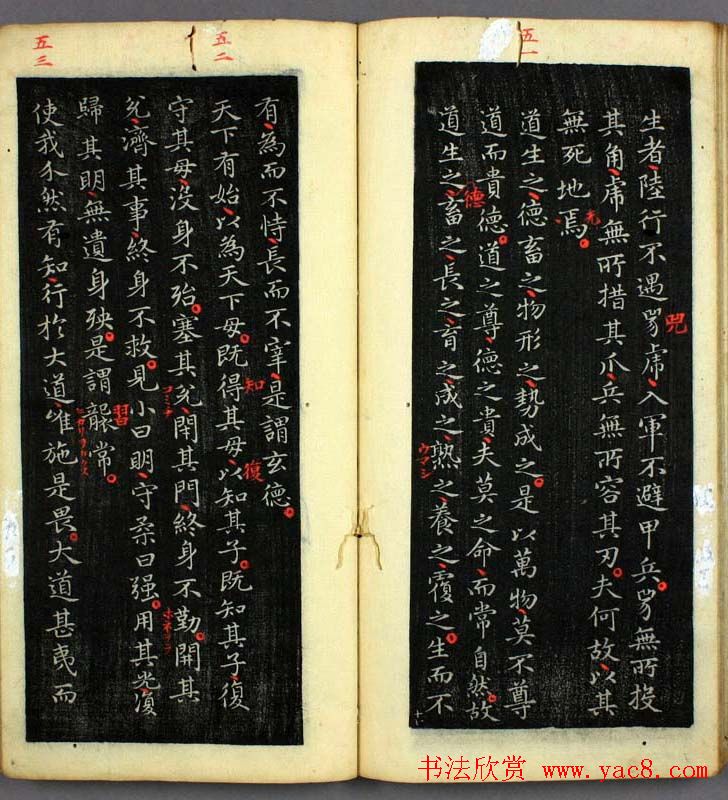 五一
生者陸行不遇兕虎入軍不避甲兵兕無所投
兕
其角虎無所措其爪兵無所容其刃夫何故以其
無死地焉
道生之德畜之物形之勢成之是以萬物莫不尊
道而貴德道之尊德之貴夫莫之命而常自然故
德
道生之畜之長之育之成之熟之養之覆之生而不
ウマシ
五二
有為而不恃長而不宰是謂玄德
天下有始以為天下母既得其母以知其子既知其子復
知
復
守其母没身不殆塞其兌閉其門終身不勤開其
コミチ
兌濟其事終身不救見小曰明守柔曰强用其光復
歸其明無遺身殃是謂襲常
習
五三
使我介然有知行於大道唯施是畏大道甚夷而
书法欣赏 www.yac8.com